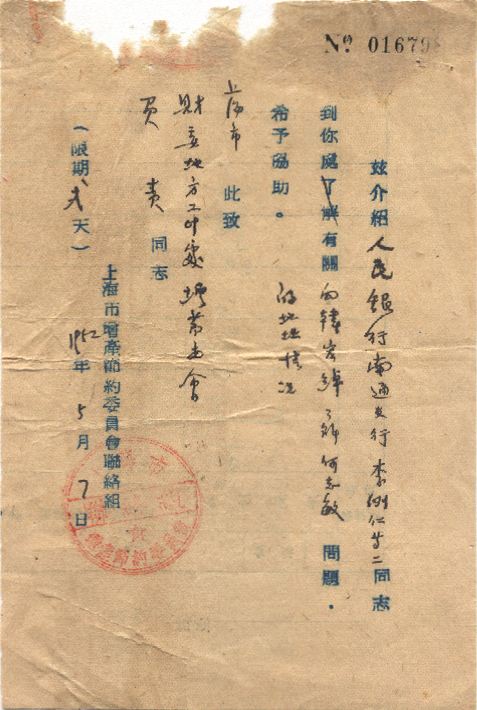 No. 01679
茲介紹人民銀行南通支行李洲仁等二同志
到你處了解有關向韓宏綽了解何志敏問題.
的地址情况
希予協助。
此致
上海市
財委地方工业處增节委會
負責同志
上海市增產節約委員會聯絡組
1952年5月7日
(限期弍天)